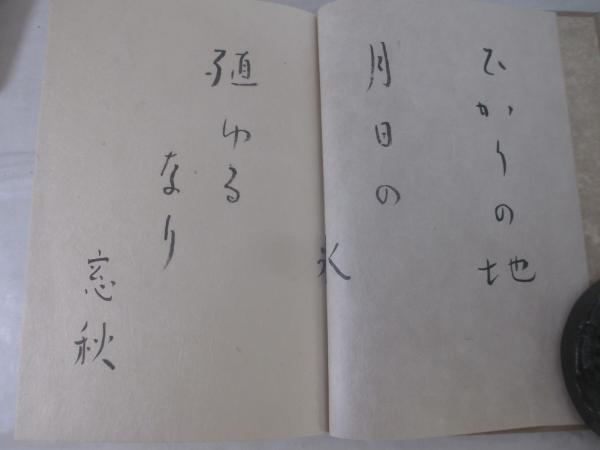 ひかりの地
月日の
殖ゆる
なり
窓秋